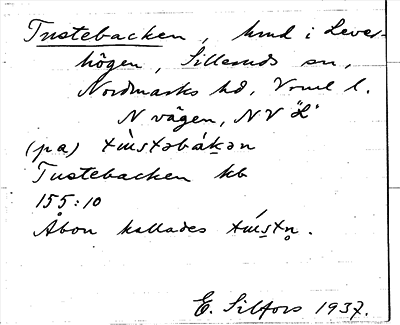 Tustebacken, hmd i Lever-
högen, Silleruds sn,
Nordmarks hd, Vrml l.
N vägen, NV "L"
(pa) tùstəbákən
Tustebacken kb
155:10
Åbon kallades
E. Silfors 1937.